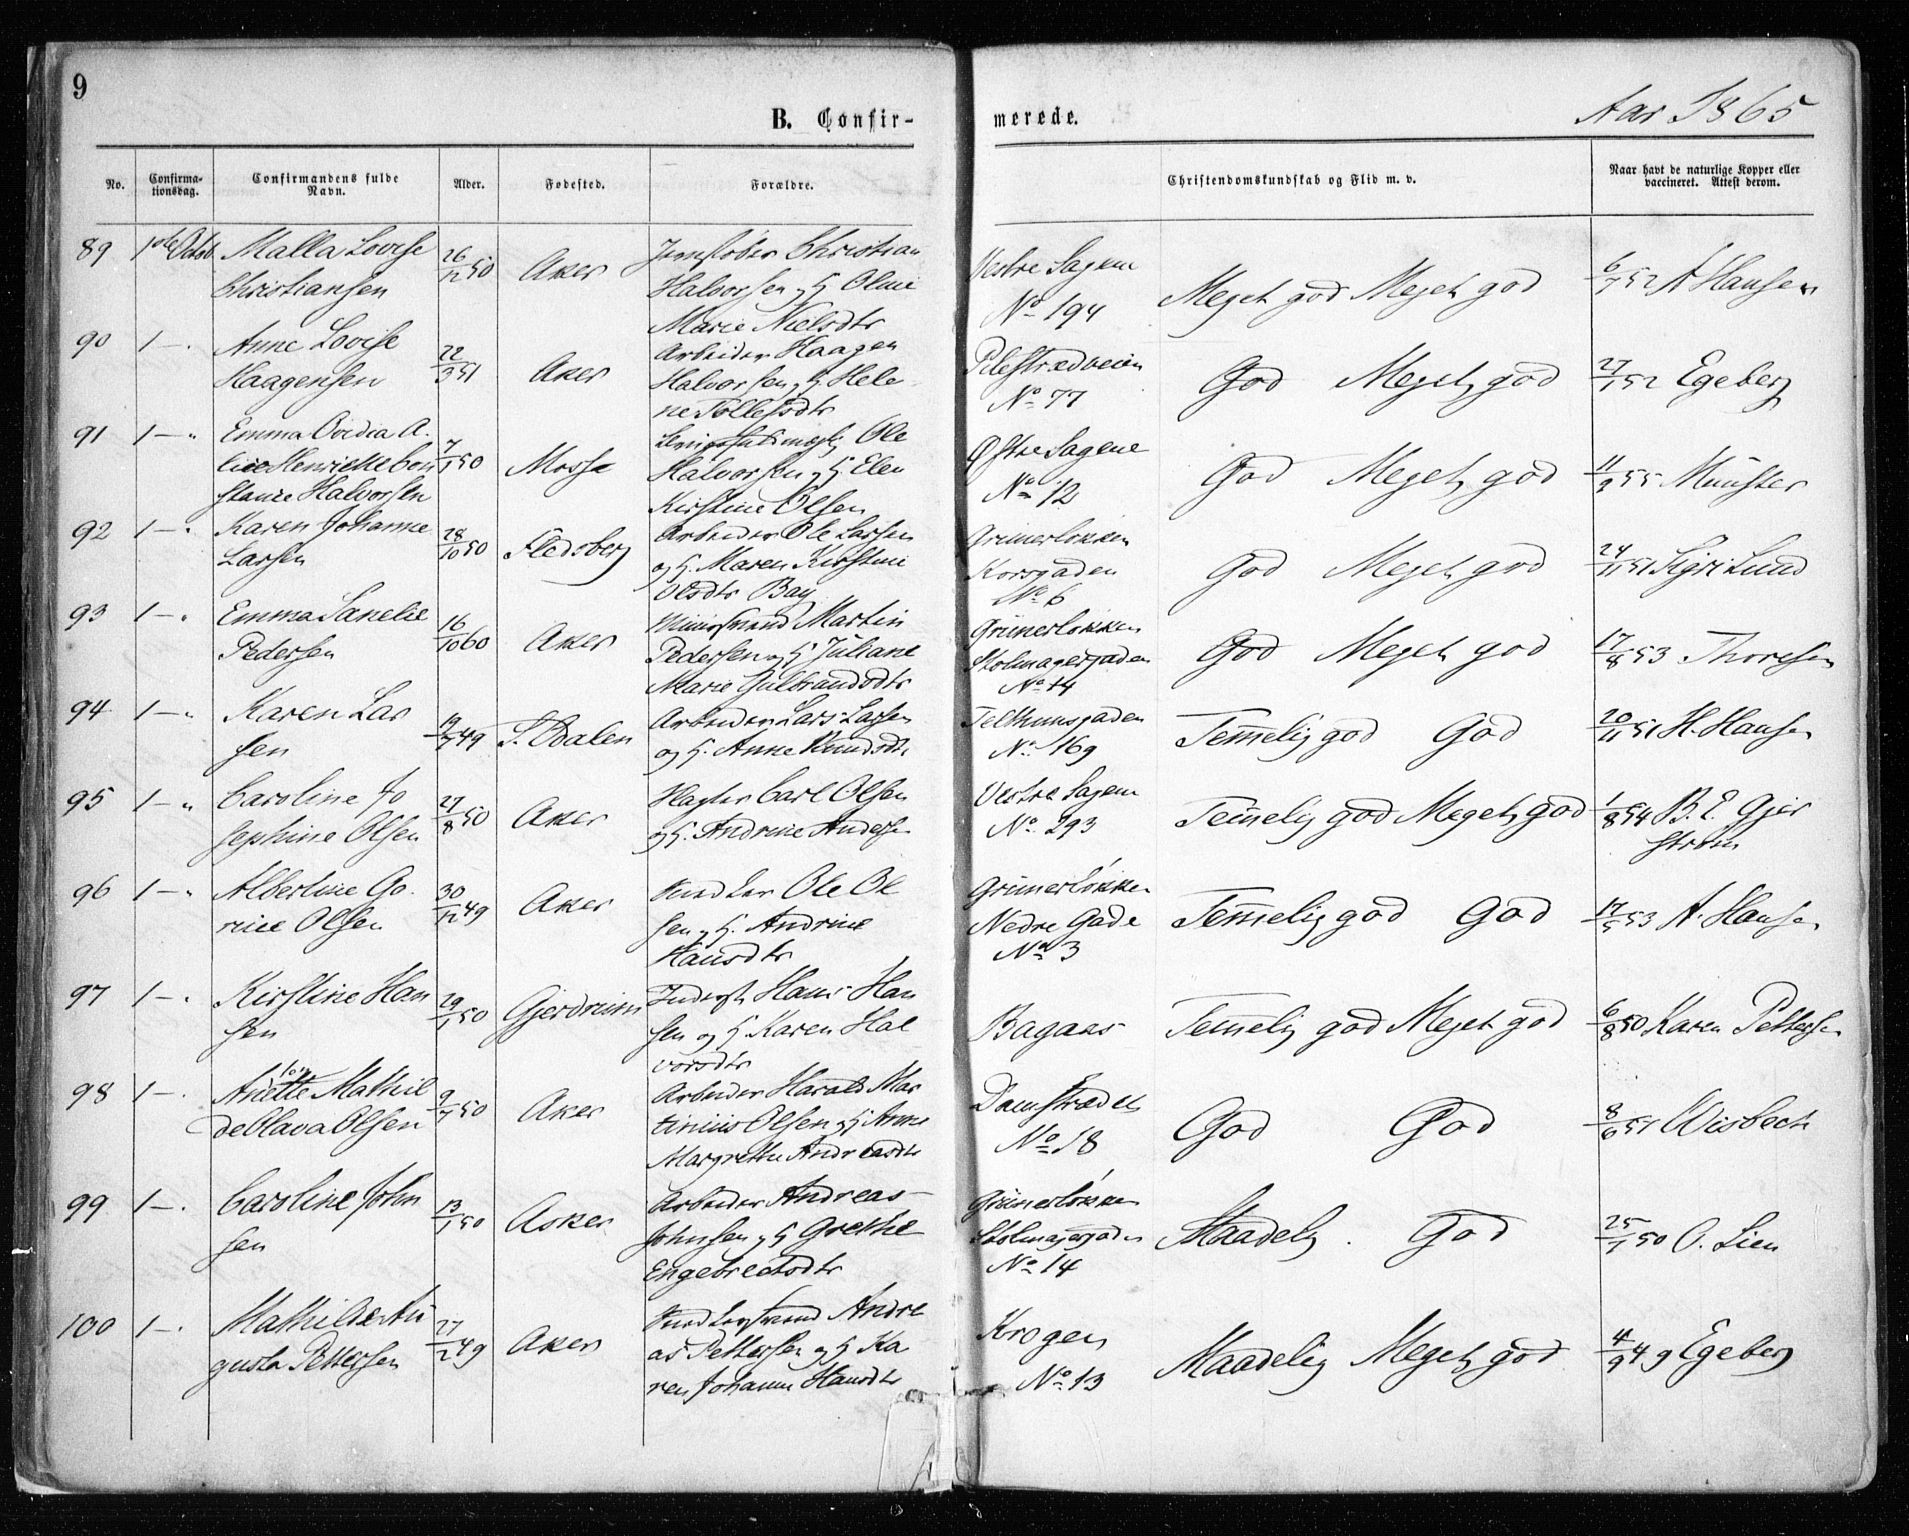 9
B. Confir-
merede.
Aar 1865
No.
Confirma-
tionsdag.
Confirmandens fulde
Navn.
Alder.
Fødested.
Forældre.
Christendomskundskab og Flid m. v.
Naar havt de naturlige Kopper eller
vaccineret. Attest derom.
89 1ste Octob. Malla Lovise
Christiansen
26/12 50
Aker
Christian
Halvorsen og H Oline
Marie Nielsdtr
Vestre Sagene
No 194
Meget god Meget god
6/7 52 A Hansen
90 1 — " Anne Lovise
Haagensen
22/3 51
Aker
Arbeider Haagen
Halvorsen og H Hele
ne Tollefsdtr
Pilestrædveien
No 77
God Meget god
27/1 52 Egeberg
91 1 — " Emma Ovidia A.
lice Henriette Con
stance Halvorsen
7/1 50
Mosse
Ole
Halvorsen og H Elen
Kirstine Olsen
Østre Sagene
No 12
God Meget god
11/9 55 Münster
92 1 — " Karen Johanne
Larsen
28/10 50
Fledsberg
Arbeider Ole Larsen
og H. Maren Kirstine
Olsdtr Bay
Grünerløkken
Korsgaden
No 6
God Meget god
24/11 51 Sigri Lund
93 1 — " Emma Lanelie
Pedersen
16/10 60
Aker
Muursvend Martin
Pedersen og H Juliane
Marie Gulbrandsdtr
Grünerløkken
Stolmagergaden
No 14
God Meget god
17/8 53 Thoresen
94 1 — " Karen Lar
sen
19/7 49
S. Odalen
Arbeider Lars Larsen
og H. Anne Knudsdtr
Telthuusgaden
No 169
Temmelig god God
20/11 51 H. Hansen
95 1 — " Caroline Jo
sephine Olsen
27/8 50
Aker
Slagter Carl Olsen
og H. Andrine Andersen
Vestre Sagene
No 293
Temmelig god Meget god
1/8 54 B. E. Gjer
strøm
96 1 — " Albertine Go.
rine Olsen
30/12 49
Aker
Snedker Ole Ol
sen og H. Andrine
Hansdtr
Grünerløkken
Nedre Gade
No 3
Temmelig god God
17/5 53 A. Hansen
97 1 — " Kirstine Han
sen
29/1 50
Gjerdrum
Inderst Hans Han
sen og H Karen Hal
vorsdtr
Bagaas
Temmelig god Meget god
6/8 50 Karen Pettersen
98 1 — " Anette Mathil
de Olava Olsen
9/7 50
Aker
Arbeider Harald Mar
tinius Olsen og H Anne
Margrethe Andreasdtr
Damstrædet
No 18
God God
8/6 51 Wisbech
99 1 — " Caroline John
sen
13/1 50
Asker
Arbeider Andreas
Johnsen og H Grethe
Engebrectsdtr
Grünerløkken
Stolmagergaden
No 14
Maadelig. God
25/7 50 O. Lien
100 1 — " Mathilde Au
gusta Pettersen
27/2 49
Aker
Snedkersvend Andre
as Pettersen og H Ka
ren Johanne Hansdtr
Krogen
No 13
Maadelig Meget god
4/9 49 Egeberg